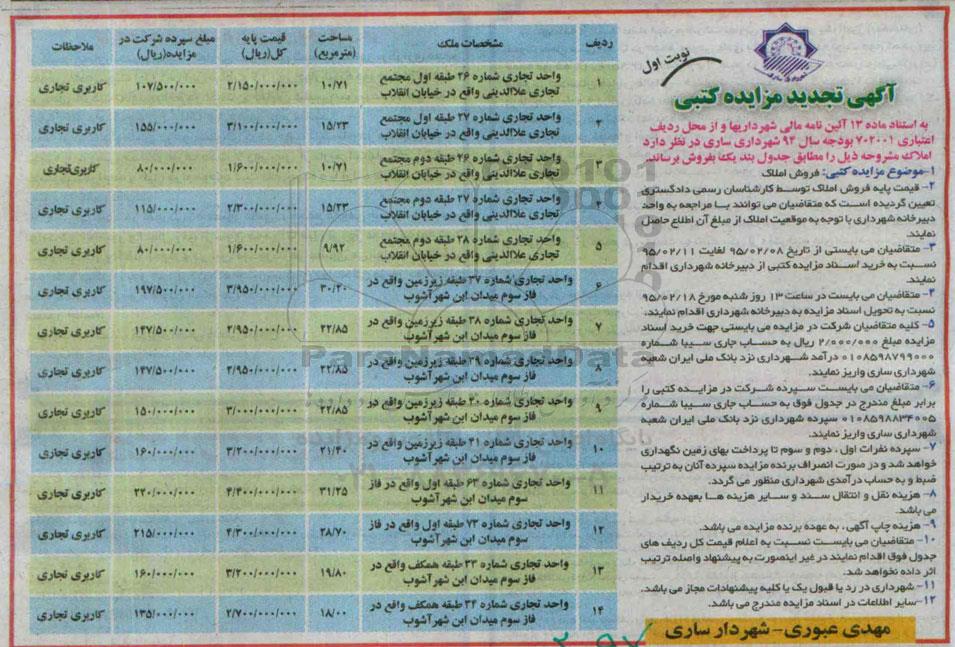 نوبت اول
شهرداری ساری
آگهی تجدید مزایده کتبی
به استناد ماده ۱۳ آئین نامه مالی شهرداریها و از محل ردیف
اعتباری ۷۰۲۰۰۱ بودجه سال ۹۴ شهرداری ساری در نظر دارد
املاک مشروحه ذیل را مطابق جدول بند یک بفروش برساند.
۱-موضوع مزایده کتبی: فروش املاک
۲- قیمت پایه فروش املاک توسط کارشناسان رسمی دادگستری
تعیین گردیده است که متقاضیان می توانند با مراجعه به واحد
دبیرخانه شهرداری با توجه به موقعیت املاک از مبلغ آن اطلاع حاصل
نمایند.
۳- متقاضیان می بایستی از تاریخ ۹۵/۰۲/۰۸ لغایت ۹۵/۰۲/۱۱
نسبت به خرید اسناد مزایده کتبی از دبیرخانه شهرداری اقدام
نمایند.
۴- متقاضیان می بایست در ساعت ۱۳ روز شنبه مورخ ۹۵/۰۲/۱۸
نسبت به تحویل اسناد مزایده به دبیرخانه شهرداری اقدام نمایند.
۵- کلیه متقاضیان شرکت در مزایده می بایستی جهت خرید اسناد
مزایده مبلغ ۲/۰۰۰/۰۰۰ ریال به حساب جاری سیبا شماره
۰۱۰۸۵۹۸۷۹۹۰۰۰ درآمد شهرداری نزد بانک ملی ایران شعبه
شهرداری ساری واریز نمایند.
۶- متقاضیان می بایست سپرده شرکت در مزایده کتبی را
برابر مبلغ مندرج در جدول فوق به حساب جاری سیبا شماره
۰۱۰۸۵۹۸۸۳۴۰۰۵ سپرده شهرداری نزد بانک ملی ایران شعبه
شهرداری ساری واریز نمایند.
۷- سپرده نفرات اول ، دوم و سوم تا پرداخت بهای زمین نگهداری
خواهد شد و در صورت انصراف برنده مزایده سپرده آنان به ترتیب
ضبط و به حساب درآمدی شهرداری منظور می گردد.
۸- هزینه نقل و انتقال سند و سایر هزینه ها بعهده خریدار
می باشد.
۹- هزینه چاپ آگهی، به عهده برنده مزایده می باشد.
۱۰- متقاضیان می بایست نسبت به اعلام قیمت کل ردیف های
جدول فوق اقدام نمایند در غیر اینصورت به پیشنهاد واصله ترتیب
اثر داده نخواهد شد.
۱۱- شهرداری در رد یا قبول یک یا کلیه پیشنهادات مجاز می باشد.
۱۲-سایر اطلاعات در اسناد مزایده مندرج می باشد.
مهدی عبوری- شهردار ساری
ردیف مشخصات ملک مساحت (مترمربع) قیمت پایه کل(ریال) مبلغ سپرده شرکت در مزایده(ریال) ملاحظات
۱ واحد تجاری شماره ۲۶ طبقه اول مجتمع تجاری علاالدینی واقع در خیابان انقلاب ۱۰/۷۱ ۲/۱۵۰/۰۰۰/۰۰۰ ۱۰۷/۵۰۰/۰۰۰ کاربری تجاری
۲ واحد تجاری شماره ۲۷ طبقه اول مجتمع تجاری علاالدینی واقع در خیابان انقلاب ۱۵/۲۳ ۳/۱۰۰/۰۰۰/۰۰۰ ۱۵۵/۰۰۰/۰۰۰ کاربری تجاری
۳ واحد تجاری شماره ۲۶ طبقه دوم مجتمع تجاری علاالدینی واقع در خیابان انقلاب ۱۰/۷۱ ۱/۶۰۰/۰۰۰/۰۰۰ ۸۰/۰۰۰/۰۰۰ کاربری تجاری
۴ واحد تجاری شماره ۲۷ طبقه دوم مجتمع تجاری علاالدینی واقع در خیابان انقلاب ۱۵/۲۳ ۲/۳۰۰/۰۰۰/۰۰۰ ۱۱۵/۰۰۰/۰۰۰ کاربری تجاری
۵ واحد تجاری شماره ۲۸ طبقه دوم مجتمع تجاری علاالدینی واقع در خیابان انقلاب ۹/۹۲ ۱/۶۰۰/۰۰۰/۰۰۰ ۸۰/۰۰۰/۰۰۰ کاربری تجاری
۶ واحد تجاری شماره ۳۷ طبقه زیرزمین واقع در فاز سوم میدان ابن شهرآشوب ۳۰/۲۰ ۳/۹۵۰/۰۰۰/۰۰۰ ۱۹۷/۵۰۰/۰۰۰ کاربری تجاری
۷ واحد تجاری شماره ۳۸ طبقه زیرزمین واقع در فاز سوم میدان ابن شهرآشوب ۲۲/۸۵ ۲/۹۵۰/۰۰۰/۰۰۰ ۱۴۷/۵۰۰/۰۰۰ کاربری تجاری
۸ واحد تجاری شماره ۳۹ طبقه زیرزمین واقع در فاز سوم میدان ابن شهرآشوب ۲۲/۸۵ ۲/۹۵۰/۰۰۰/۰۰۰ ۱۴۷/۵۰۰/۰۰۰ کاربری تجاری
۹ واحد تجاری شماره ۴۰ طبقه زیرزمین واقع در فاز سوم میدان ابن شهرآشوب ۲۲/۸۵ ۳/۰۰۰/۰۰۰/۰۰۰ ۱۵۰/۰۰۰/۰۰۰ کاربری تجاری
۱۰ واحد تجاری شماره ۴۱ طبقه زیرزمین واقع در فاز سوم میدان ابن شهرآشوب ۲۱/۴۰ ۳/۲۰۰/۰۰۰/۰۰۰ ۱۶۰/۰۰۰/۰۰۰ کاربری تجاری
۱۱ واحد تجاری شماره ۶۳ طبقه اول واقع در فاز سوم میدان ابن شهرآشوب ۳۱/۲۵ ۴/۴۰۰/۰۰۰/۰۰۰ ۲۲۰/۰۰۰/۰۰۰ کاربری تجاری
۱۲ واحد تجاری شماره ۷۳ طبقه اول واقع در فاز سوم میدان ابن شهرآشوب ۲۸/۷۰ ۴/۳۰۰/۰۰۰/۰۰۰ ۲۱۵/۰۰۰/۰۰۰ کاربری تجاری
۱۳ واحد تجاری شماره ۲۳ طبقه همکف واقع در فاز سوم میدان ابن شهرآشوب ۱۹/۸۰ ۳/۲۰۰/۰۰۰/۰۰۰ ۱۶۰/۰۰۰/۰۰۰ کاربری تجاری
۱۴ واحد تجاری شماره ۳۴ طبقه همکف واقع در فاز سوم میدان ابن شهرآشوب ۱۸/۰۰ ۲/۷۰۰/۰۰۰/۰۰۰ ۱۳۵/۰۰۰/۰۰۰ کاربری تجاری